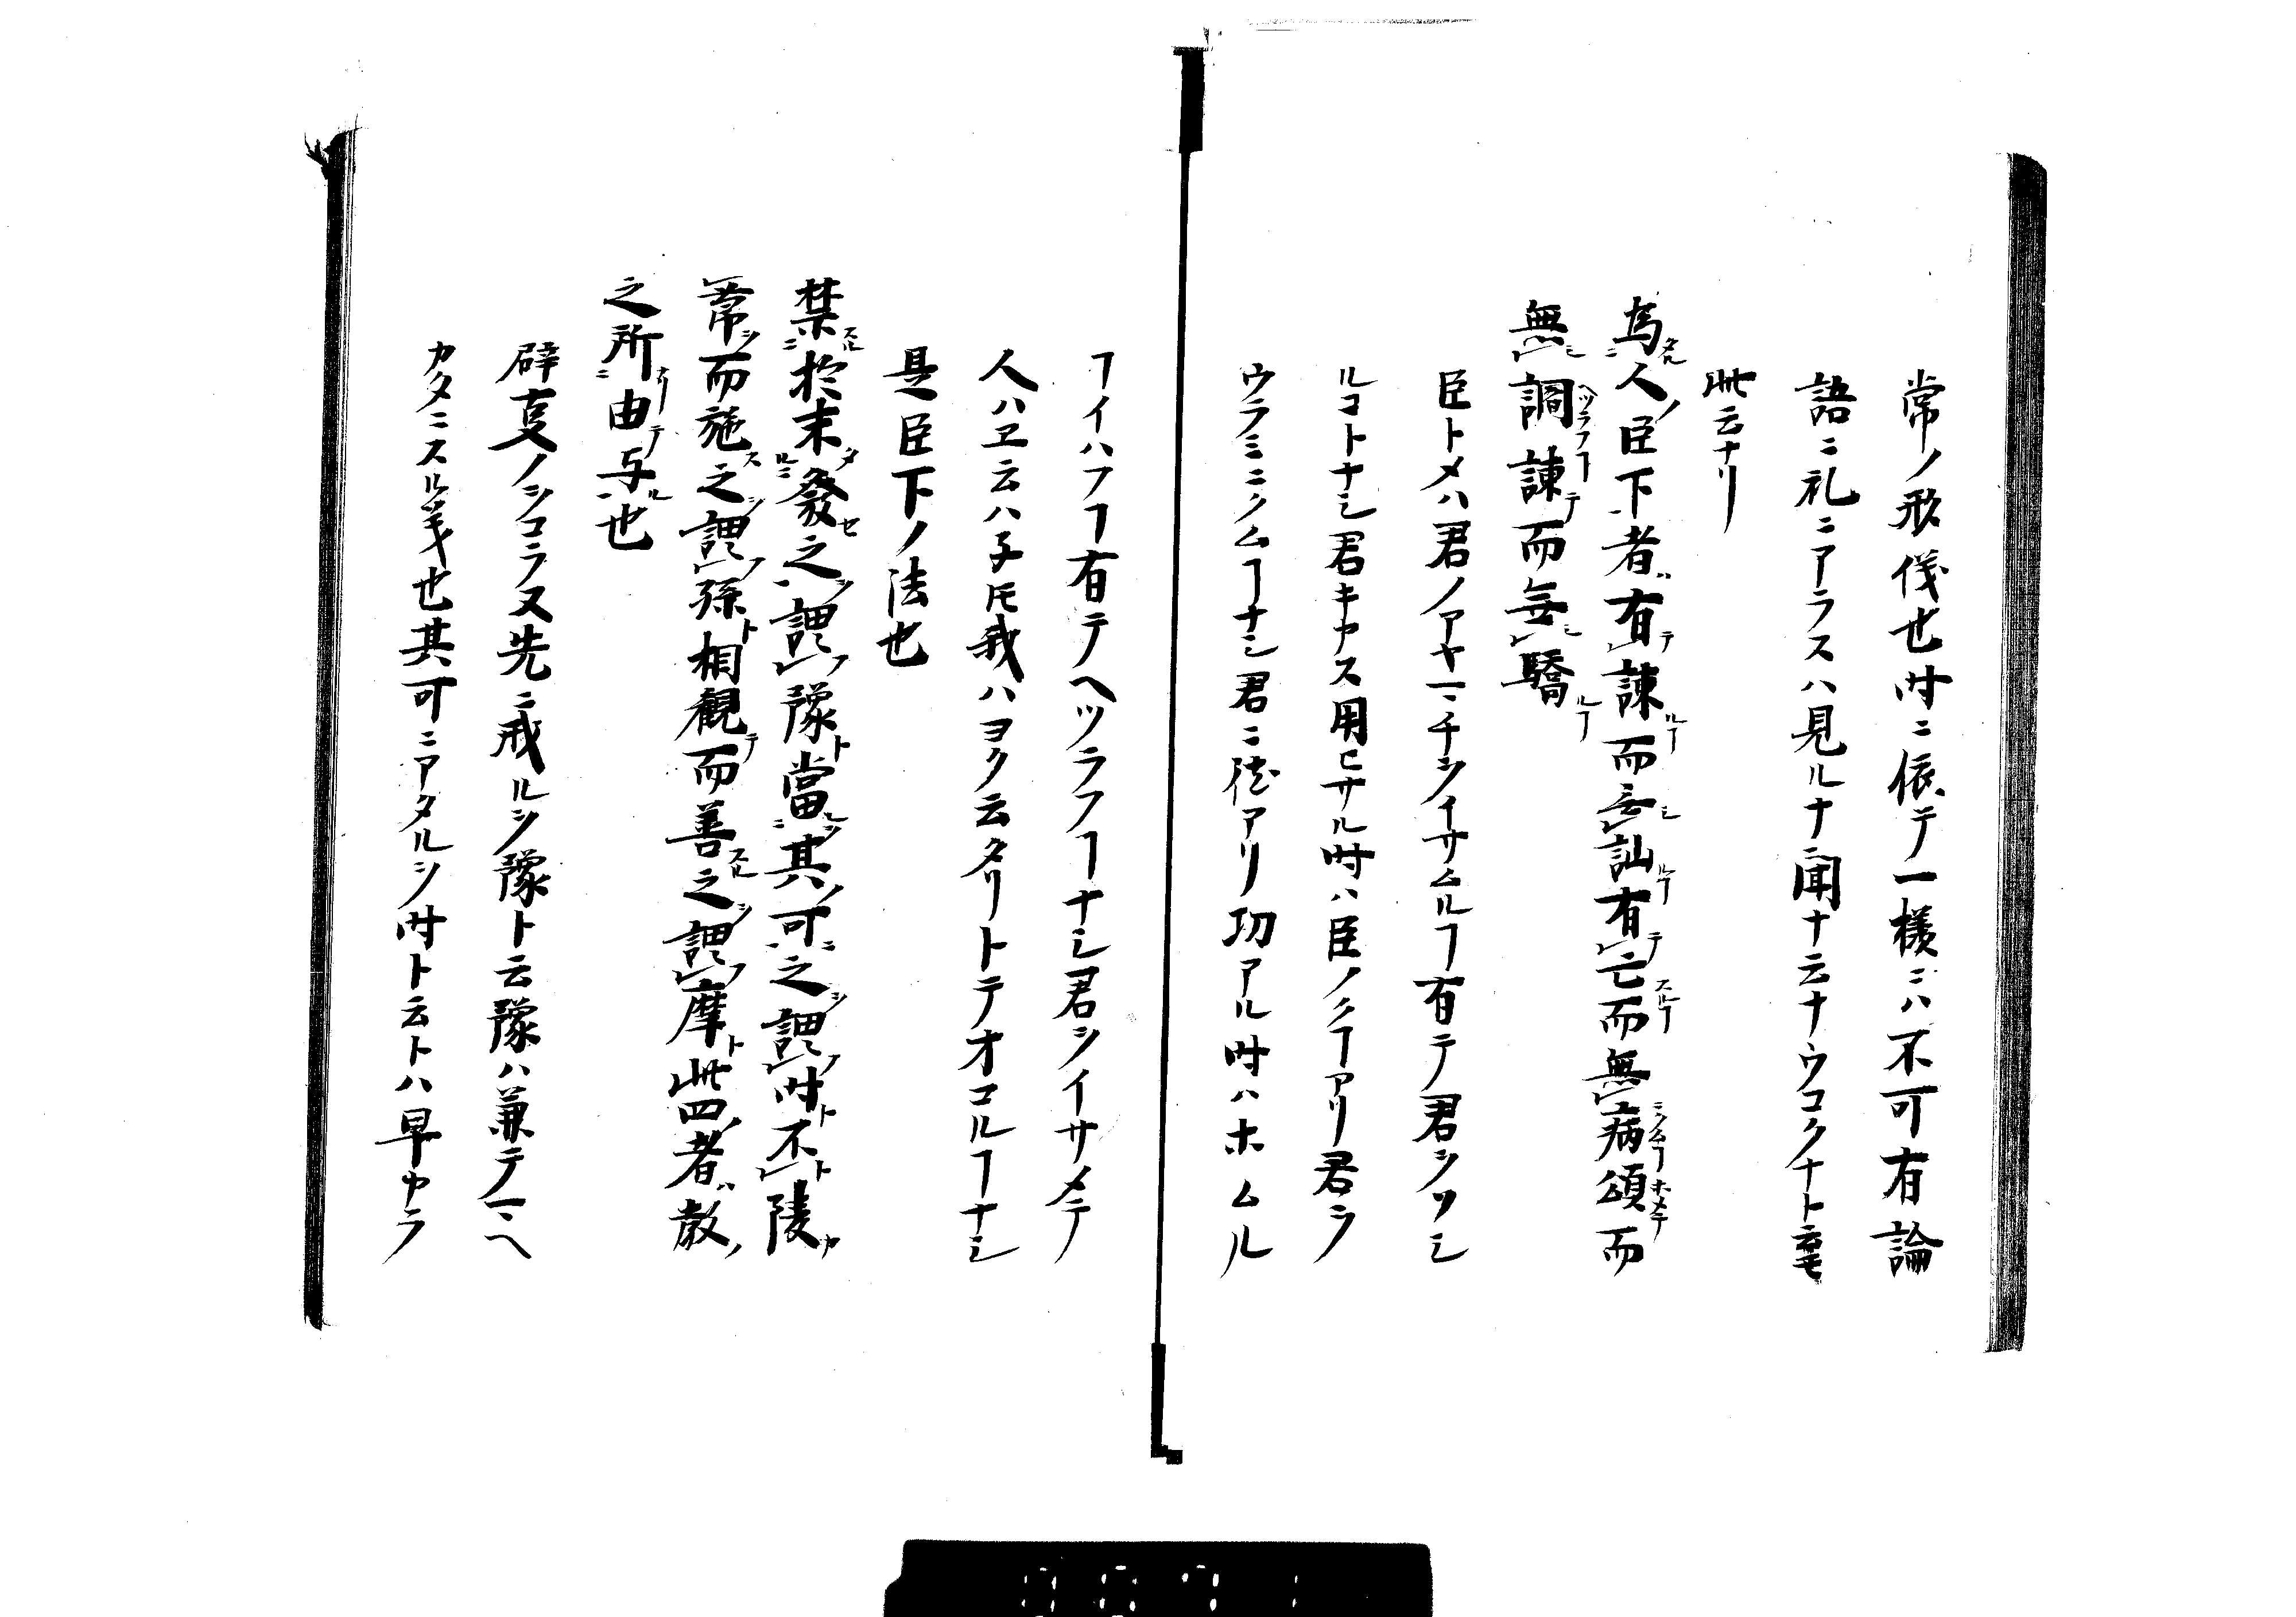 常ノ形儀也時ニ依テ一様ニハ不可有論
語ニ礼ニアラスハ見ルナ聞ナ云ナウコクナト云モ
此云ナリ
為人臣下者有諫而無訕有亡而無病頌而
無讇諫而無驕
臣トメハ君ノアヤマチヲイサムルヿ有テ君ヲソシ
ルコトナシ君キカス用ヒサル時ハ臣ノクヿアリ君ヲ
ウラミニクムヿナシ君ニ徳アリ功アル時ハホムル
ヿイハフヿ有テヘツラフヿナシ君ヲイサメテ
人ハヱ云ハ子トモ我ハヨク云タリトテオコルヿナシ
是臣下ノ法也
禁於未發之謂豫當其可之謂時不陵
節而施之謂孫相観而善之謂摩此四者教
之所由与也
辟㕝ノシコラヌ先ニ戒ルヲ豫ト云豫ハ兼テマヘ
カタニスル義也其可ニアタルヲ時ト云トハ早カラ